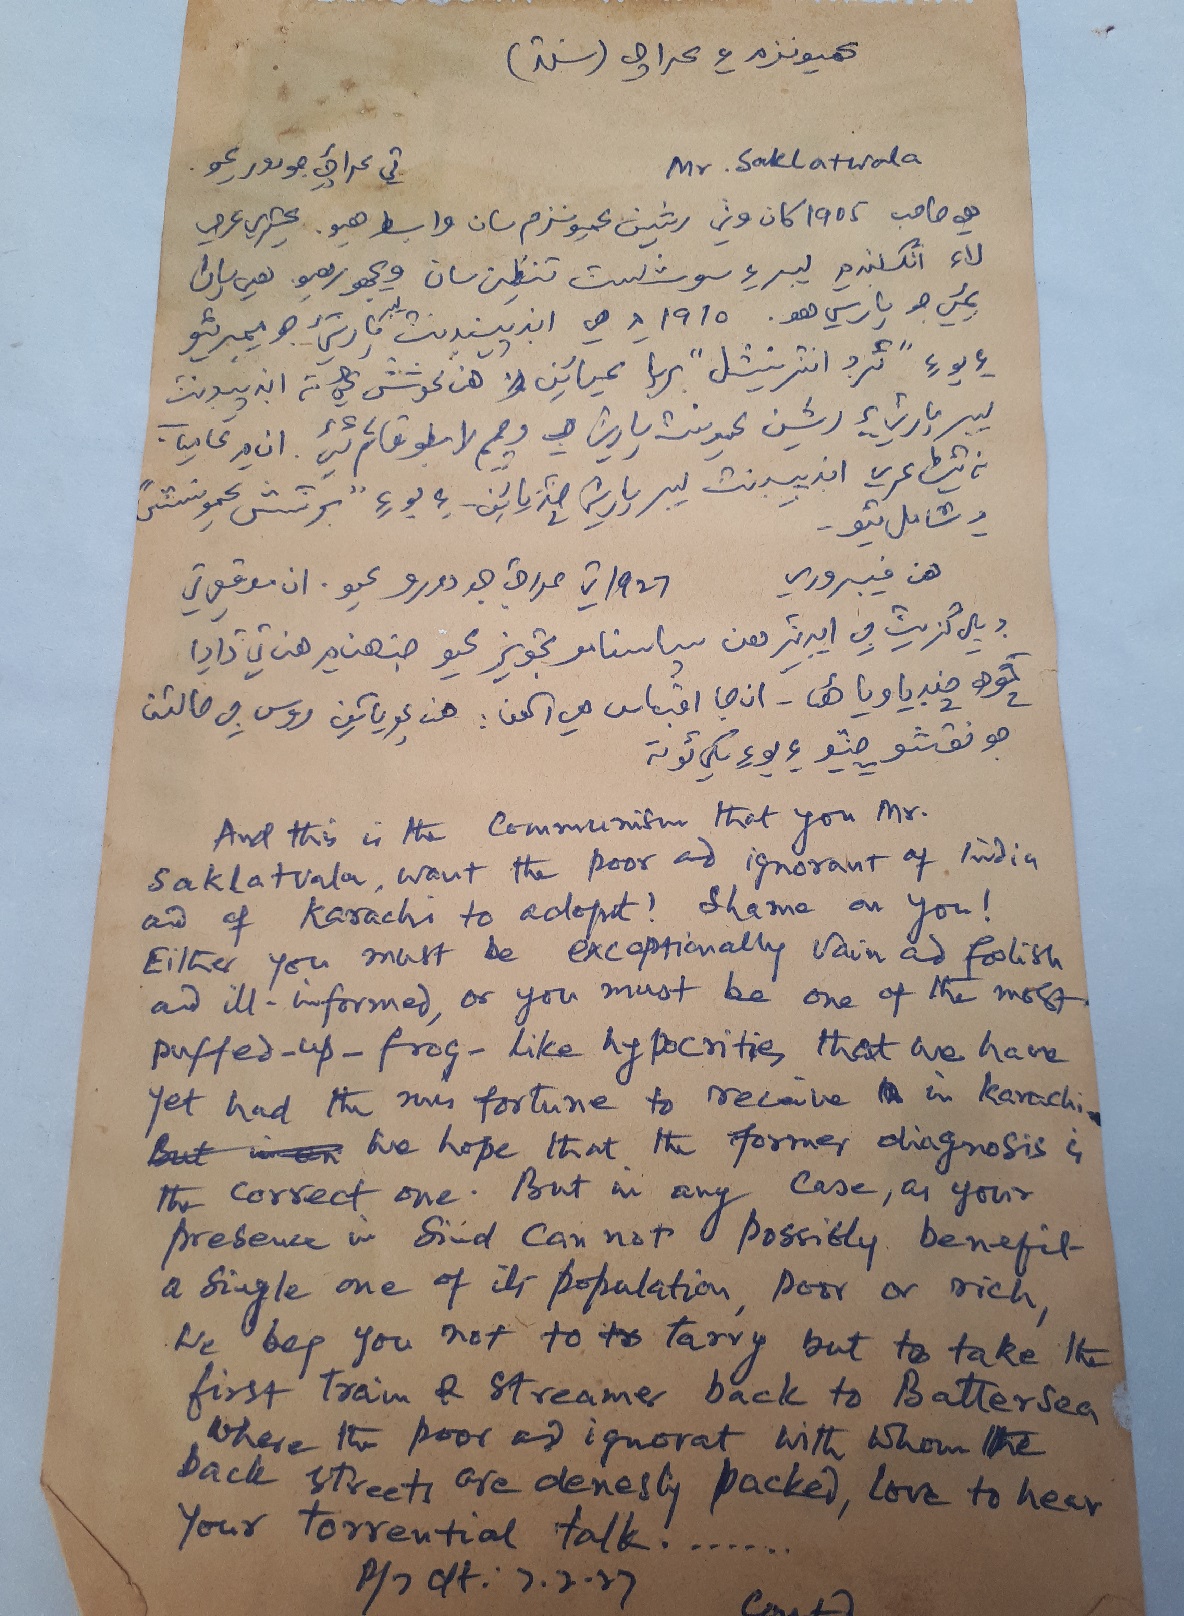 ڪميونزم ۽ ڪراچي (سنڌ)
Mr. Saklatwala تي ڪراچيءَ جو دورو ڪيو.
هي صاحب 1905 کان وٺي رشين ڪميونزم سان وابسط هيو. ڪيتري عرصي
لاءِ انگلنڊ ۾ ليبر ۽ سوشلسٽ تنظيمن سان ويجهو رهيو. هي
بمبئي جو پارسي هو. 1910 ۾ هي انڊيپينڊنٽ ليبر پارٽيءَ جو ميمبر ٿيو
۽ پوءِ "ٿرڊ انٽرنيشنل" برپا ڪيائين هن ڪوشش ڪئي ته انڊيپينڊنٽ
ليبر پارٽيءَ ۽ رشين ڪميونسٽ پارٽيءَ جي وچ ۾ لاڳاپو قائم ٿئي. ان ۾ ڪامياب
نه ٿيڻ ڪري انڊيپينڊنٽ ليبر پارٽي ڇڏيائين ۽ پوءِ "برٽش ڪميونسٽس"
۾ شامل ٿيو-
هن فيبروري 1927 تي ڪراچي جو دورو ڪيو. ان موقعي تي
ڊيلي گزيٽ جي ايڊيٽر هن سپاسنامو تجويز ڪيو جنهن ۾ هن تي ڏاڍا
ٽوڪ ڇنڊيا ويا هئا - ان جا اقتباس هي آهن: هن پهريائين روس جي حالتن
جو نقشو چٽيو ۽ پوءِ لکيو ته
And this is the Communism that you Mr.
Saklatvala, want the poor ad ignorant of India
and of Karachi to adopt! Shame on you!
Either you must be exceptionally vain ad foolish
and ill-informed, or you must be one of the most
puffed-up-frog-like hypocrities that we have
yet had the misfortune to receive in Karachi.
But in We hope that the former diagnosis is
the correct one. But in any case, as your
presence in Sind can not possibly benefit
a single one of its population, poor or rich,
We beg you not to to tarry but to take the
first train & streamer back to Battersea
where the poor ad ignorat with whom the
back streets are denesly packed, love to hear
your torrential talk.......
P/7 dt: 7.2.27
Contd